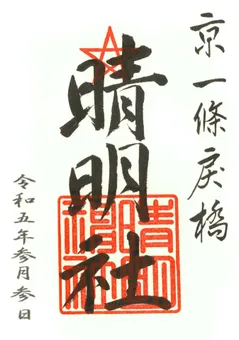 京一條戻橋
晴明社
令和五年参月参日